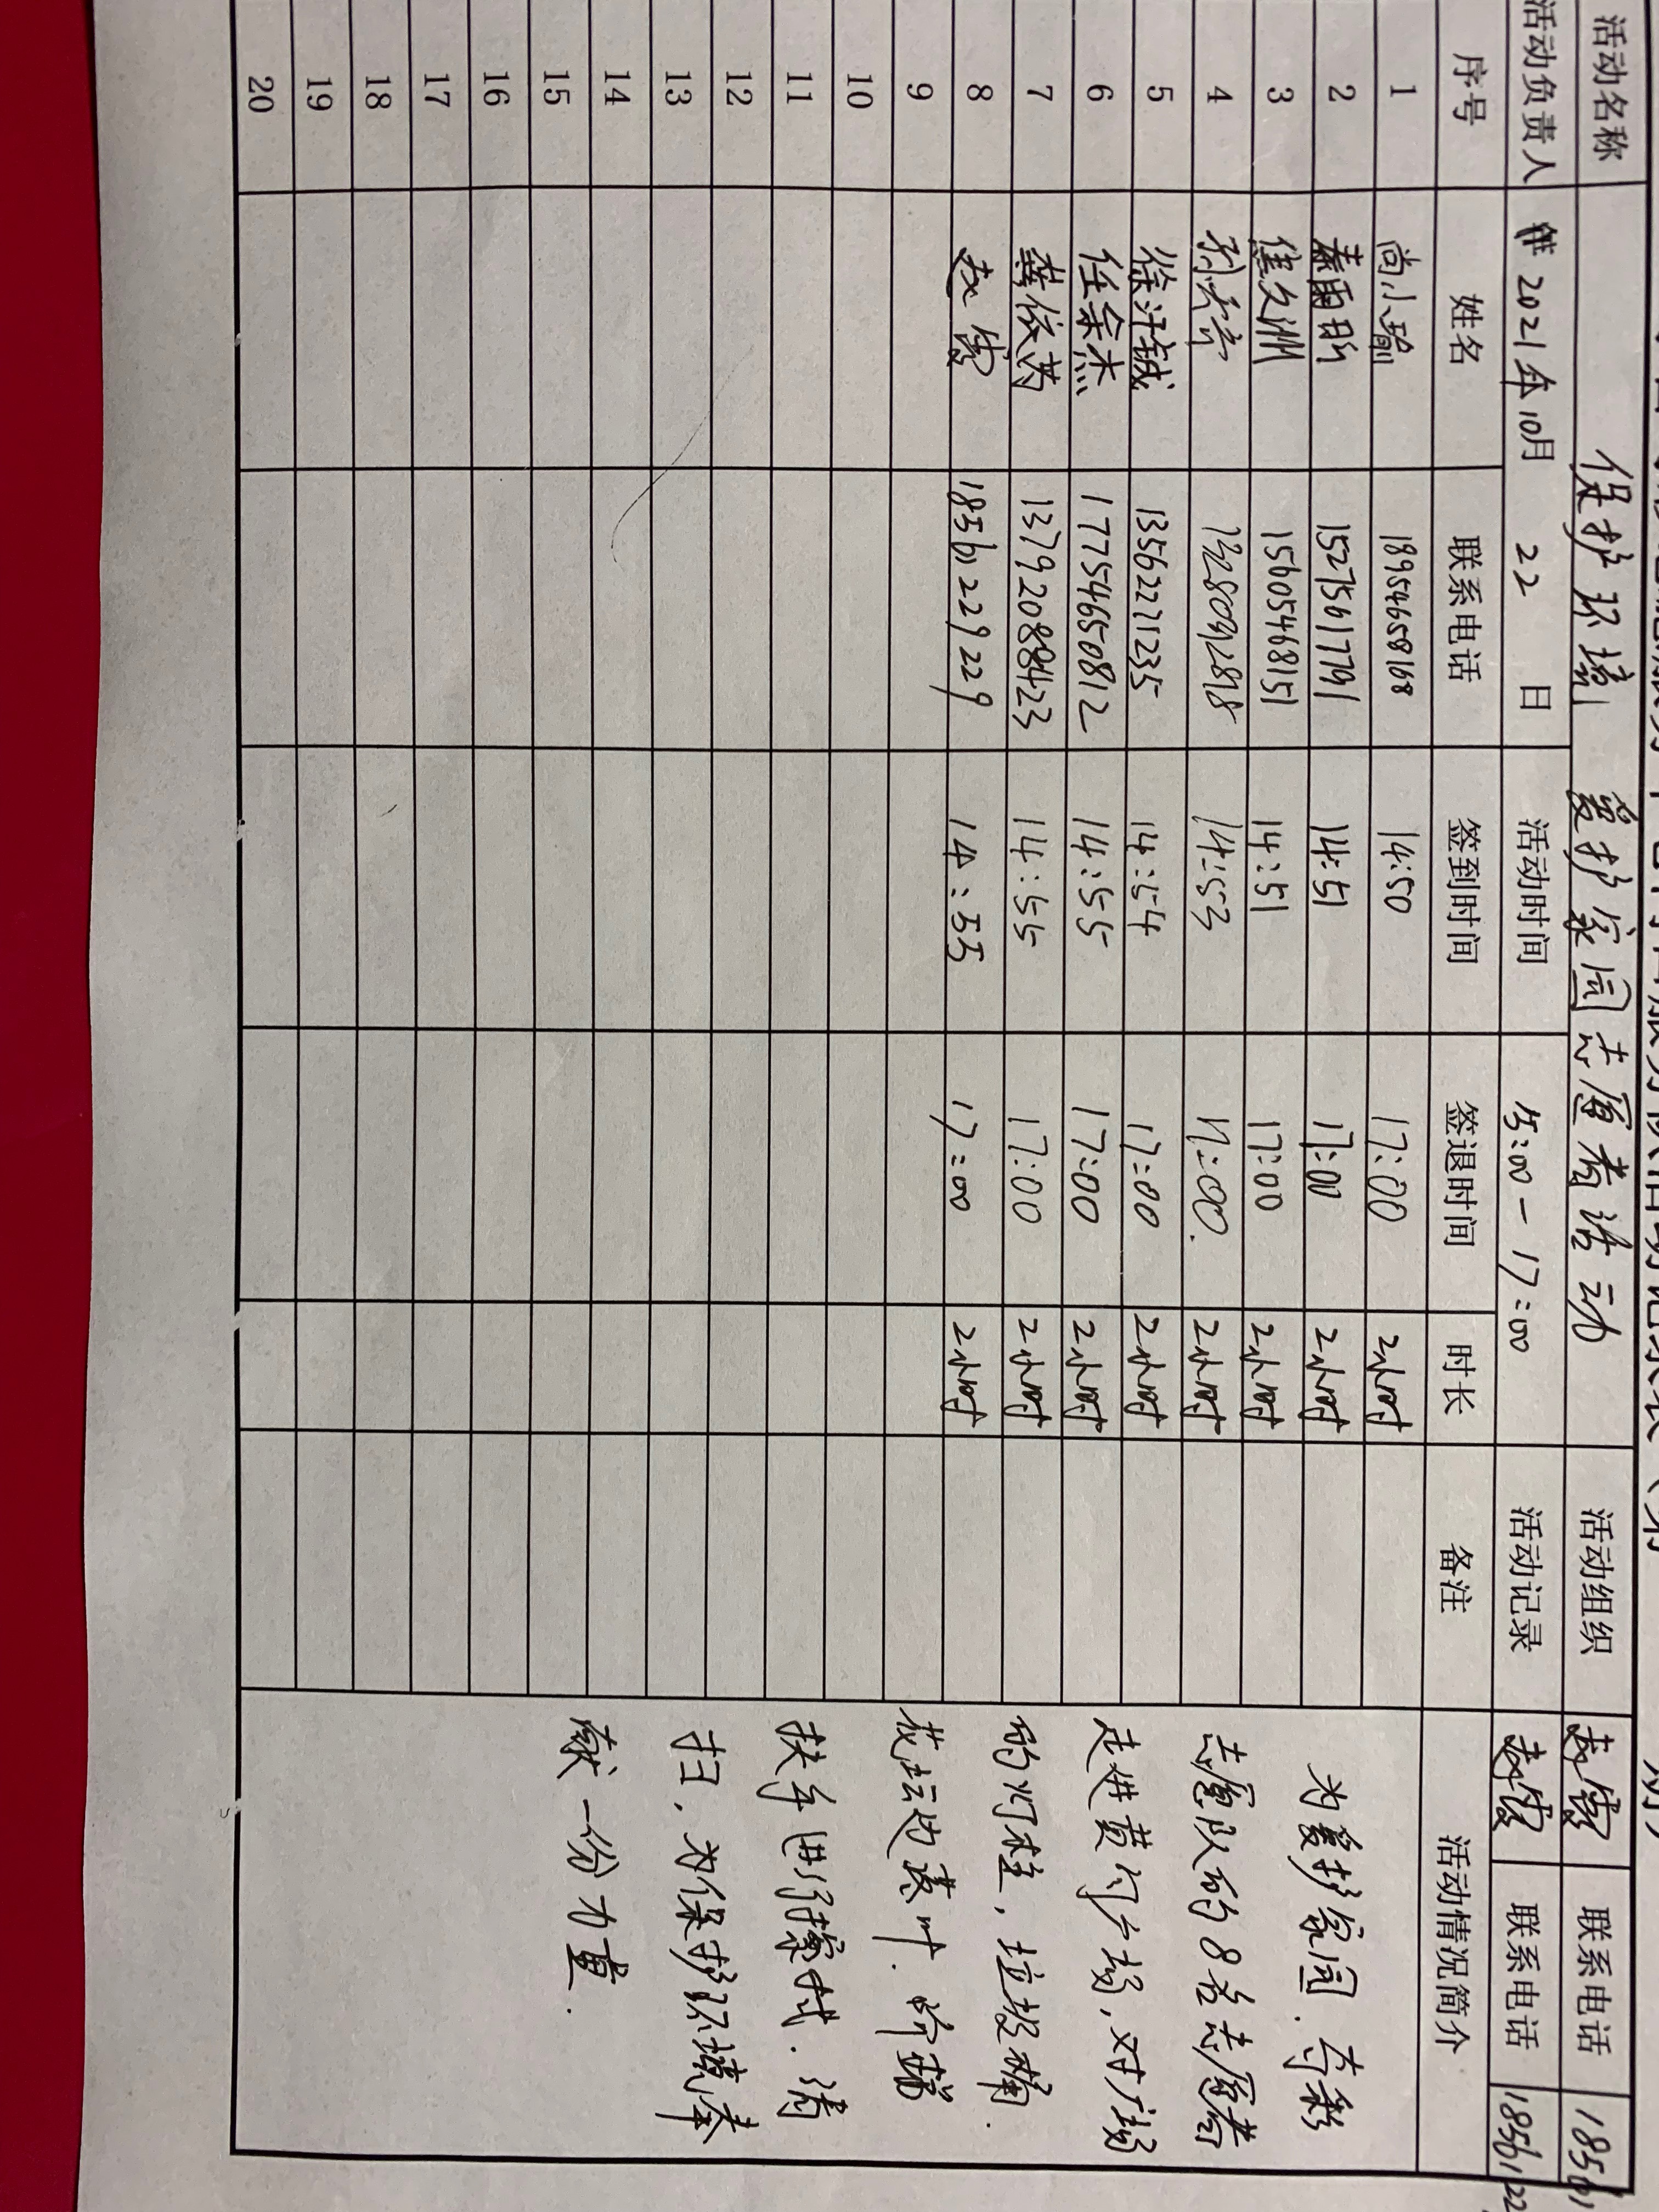 活动名称 保护环境 爱护家园志愿者活动 活动组织 赵雪 联系电话
活动负责人 2021年10月 22 日 活动时间 15:00-17:00 活动记录 联系电话
序号 姓名 联系电话 签到时间 签退时间 时长 备注 活动情况简介
1 尚小瑜 18954658168 14:50 17:00 2小时
2 秦雨昕 15275617791 14:51 17:00 2小时
3 焦文洲 15605468151 14:51 17:00 2小时
4 14:53 17:00. 2小时
5 徐汗铖 13562271235 14:54 17:00 2小时
6 任余杰 17754650812 14:55 17:00 2小时
7 龚依芮 14:55 17:00 2小时
8 赵雪 18561229229 14:55 17:00 2小时
9
10
11
12
13
14
15
16
17
18
19
20
为爱护家园、
志愿队的8名志愿者
走进黄门广场,对广场
的灯柱,垃圾桶、
花坛边落叶、
扶手进行擦拭、清
扫,为保护环境奉
献一份力量.